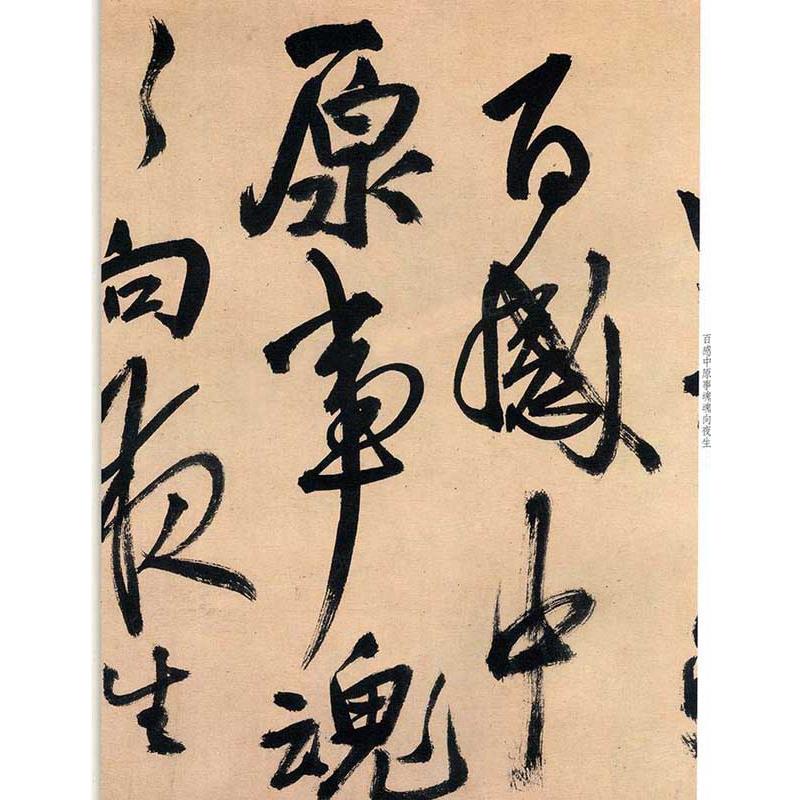 百感中
原事魂
〻向夜生
百感中原事魂魂向夜生